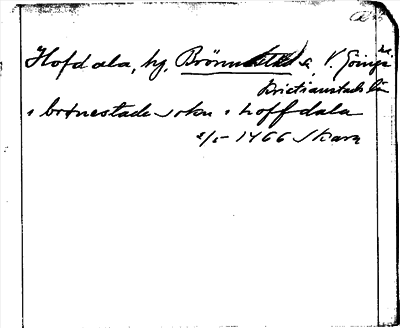 Hofdala, hg. Brönnestad s, V. Göinge
Kristianstads län
i brönestade sokn i hoffdala
2/5 1466 Skara